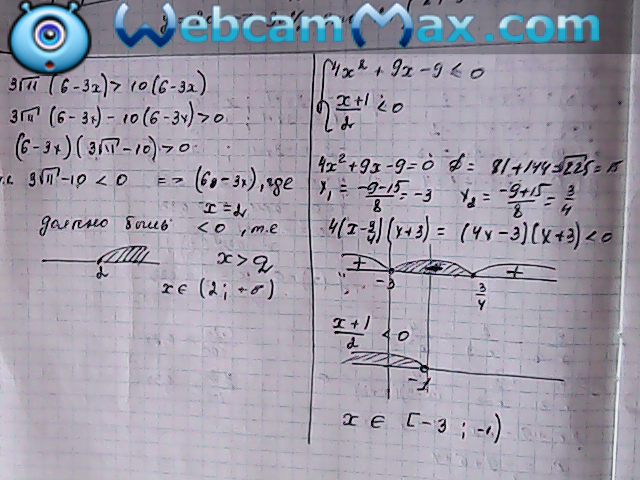 WebcamMax.com
3√11 (6-3x) > 10(6-3x)
3√11 (6-3x) - 10(6-3x) > 0
(6-3x)(3√11 - 10) > 0
т.к 3√11 - 10 < 0 => (6-3x), где
x = 2
должно быть < 0, т.е
x > 2
2
x ∈ (2; +∞)
{4x² + 9x - 9 ≤ 0
x+1/2 < 0
4x² + 9x - 9 = 0 D = 81 + 144 = √225 = 15
x₁ = -9-15/8 = -3 x₂ = -9+15/8 = 3/4
4(x - 3/4)(x+3) = (4x-3)(x+3) < 0
+ - +
-3 3/4
x+1/2 < 0
-1
x ∈ [-3; -1)